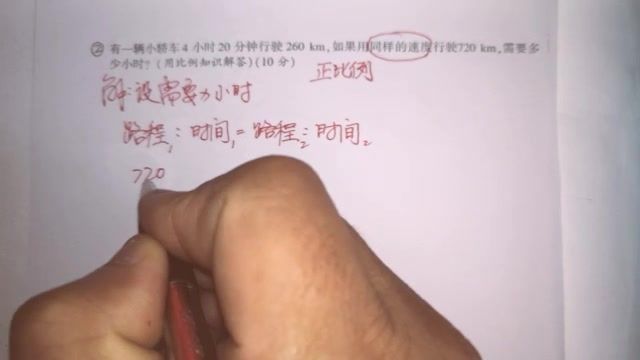 ② 有一辆小轿车4小时20分钟行驶260 km,如果用同样的速度行驶720 km,需要多
少小时?(用比例知识解答)(10分)
正比例
解:设需要x小时
路程₁:时间₁=路程₂:时间₂
720